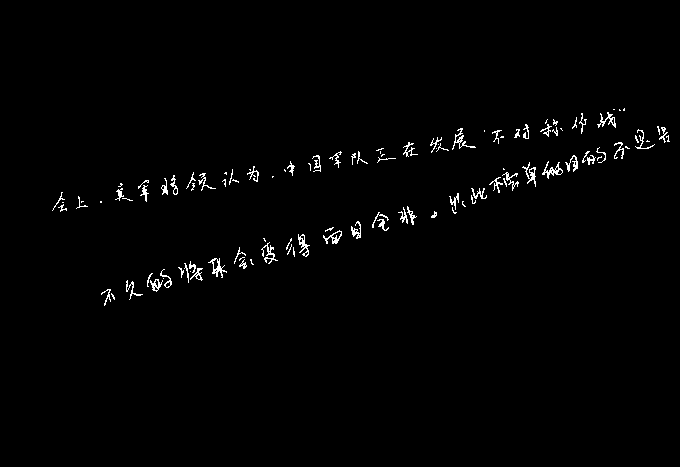 会上，美军将领认为，中国军队正在发展“不对称作战”
不久的将来会变得面目全非。以此榜单的目的不是另